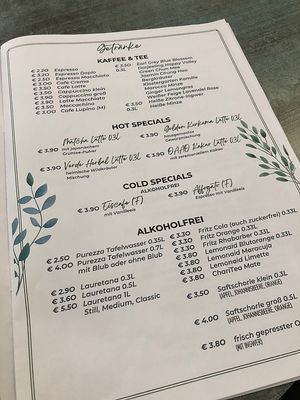 Getränke
KAFFEE & TEE
€ 2.20 Espresso
€ 3.20 Espresso Dopio
Espresso Macchiato
Cafe Creme
Cafe Latte
€ 3.50 Cappuccino klein
€ 3.90 Cappuccino groß
€ 3.90 Latte Macchiato
Moccachino
€ 3.00 Cafe Lupino (M)
€ 3.50 Earl Grey Blue Blossom
0.3L Darjeeling Happy Valley
Green Chun Mee
Jasmin Chung Hao
Bergkräuter
Klostergarten Kamille
Marocco Minze
Ginger Lemongras
Weißer Feige Lavendel Rose
Heiße Zitrone-Ingwer
Heiße Minze
HOT SPECIALS
€ 3.90 Matcha Latte 0,3L
mit japanischem
Grüntee-Pulver
€ 3.90 Golden Kurkuma Latte 0,3L
Gewürzmischung
€ 3.90 Vardo Herbal Latte 0,3L
heimische Wildkräuter
Mischung
€ 3.90 Kakao Latte 0,3L
mit zeremoniellem Kakao
COLD SPECIALS
ALKOHOLFREI
€ 3.90 Eiscafe (F)
mit Vanilleeis
€ 3.90 Affogato (F)
Espresso mit Vanilleeis
ALKOHOLFREI
€ 2.50 Purezza Tafelwasser 0.35L
€ 4.00 Purezza Tafelwasser 0.7L
mit Blub oder ohne Blub
€ 2.90 Lauretana 0.3L
€ 3.60 Lauretana 0.5L
€ 5.50 Lauretana 1L
Still, Medium, Classic
€ 3.30 Fritz Cola (auch zuckerfrei) 0.33L
€ 3.30 Fritz Orange 0.33L
€ 3.30 Fritz Rhabarber 0.33L
€ 3.80 Lemonaid Blutorange 0.33L
€ 3.80 Lemonaid Maracuja
€ 3.80 Lemonaid Limette
€ 3.80 ChariTea Mate
€ 3.50 Saftschorle klein 0.3L
(APFEL, JOHANNISBEERE, ORANGE)
€ 4.00 Saftschorle groß 0.5L
(APFEL, JOHANNISBEERE, ORANGE)
€ 3.80 frisch gepresster
(MIT INGWER)